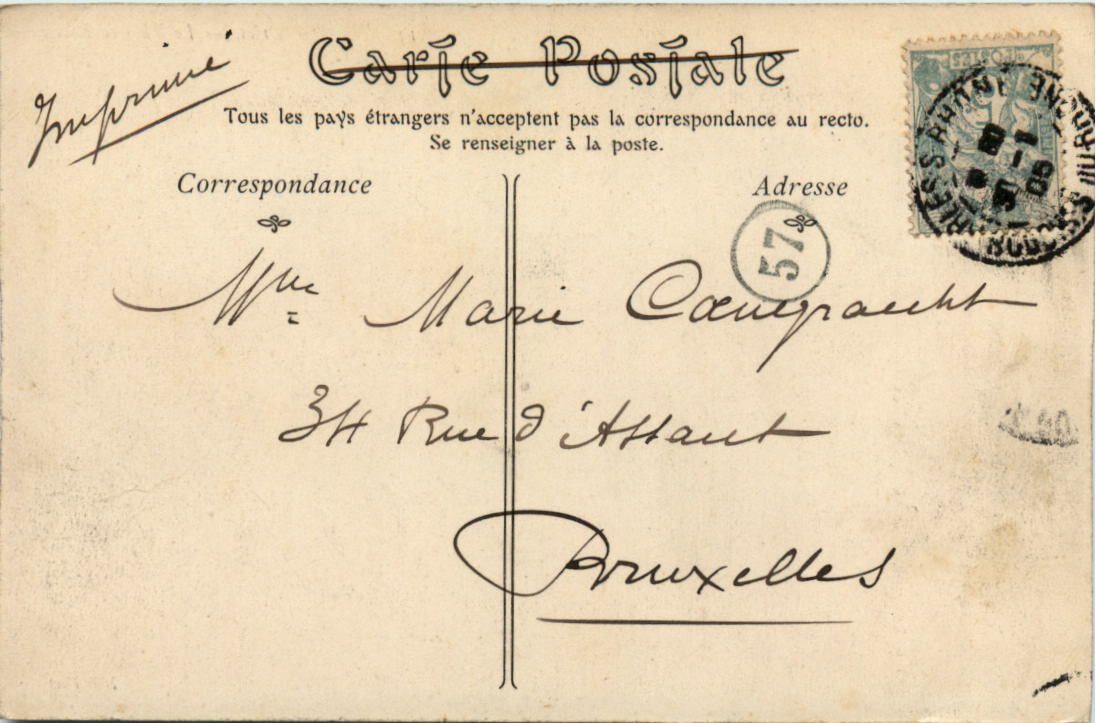 Imprimé
Carte Postale
Tous les pays étrangers n'acceptent pas la correspondance au recto.
Se renseigner à la poste.
Correspondance
Adresse
57
Mme Marie
34 Rue d'Assaut
Bruxelles
POSTES
05